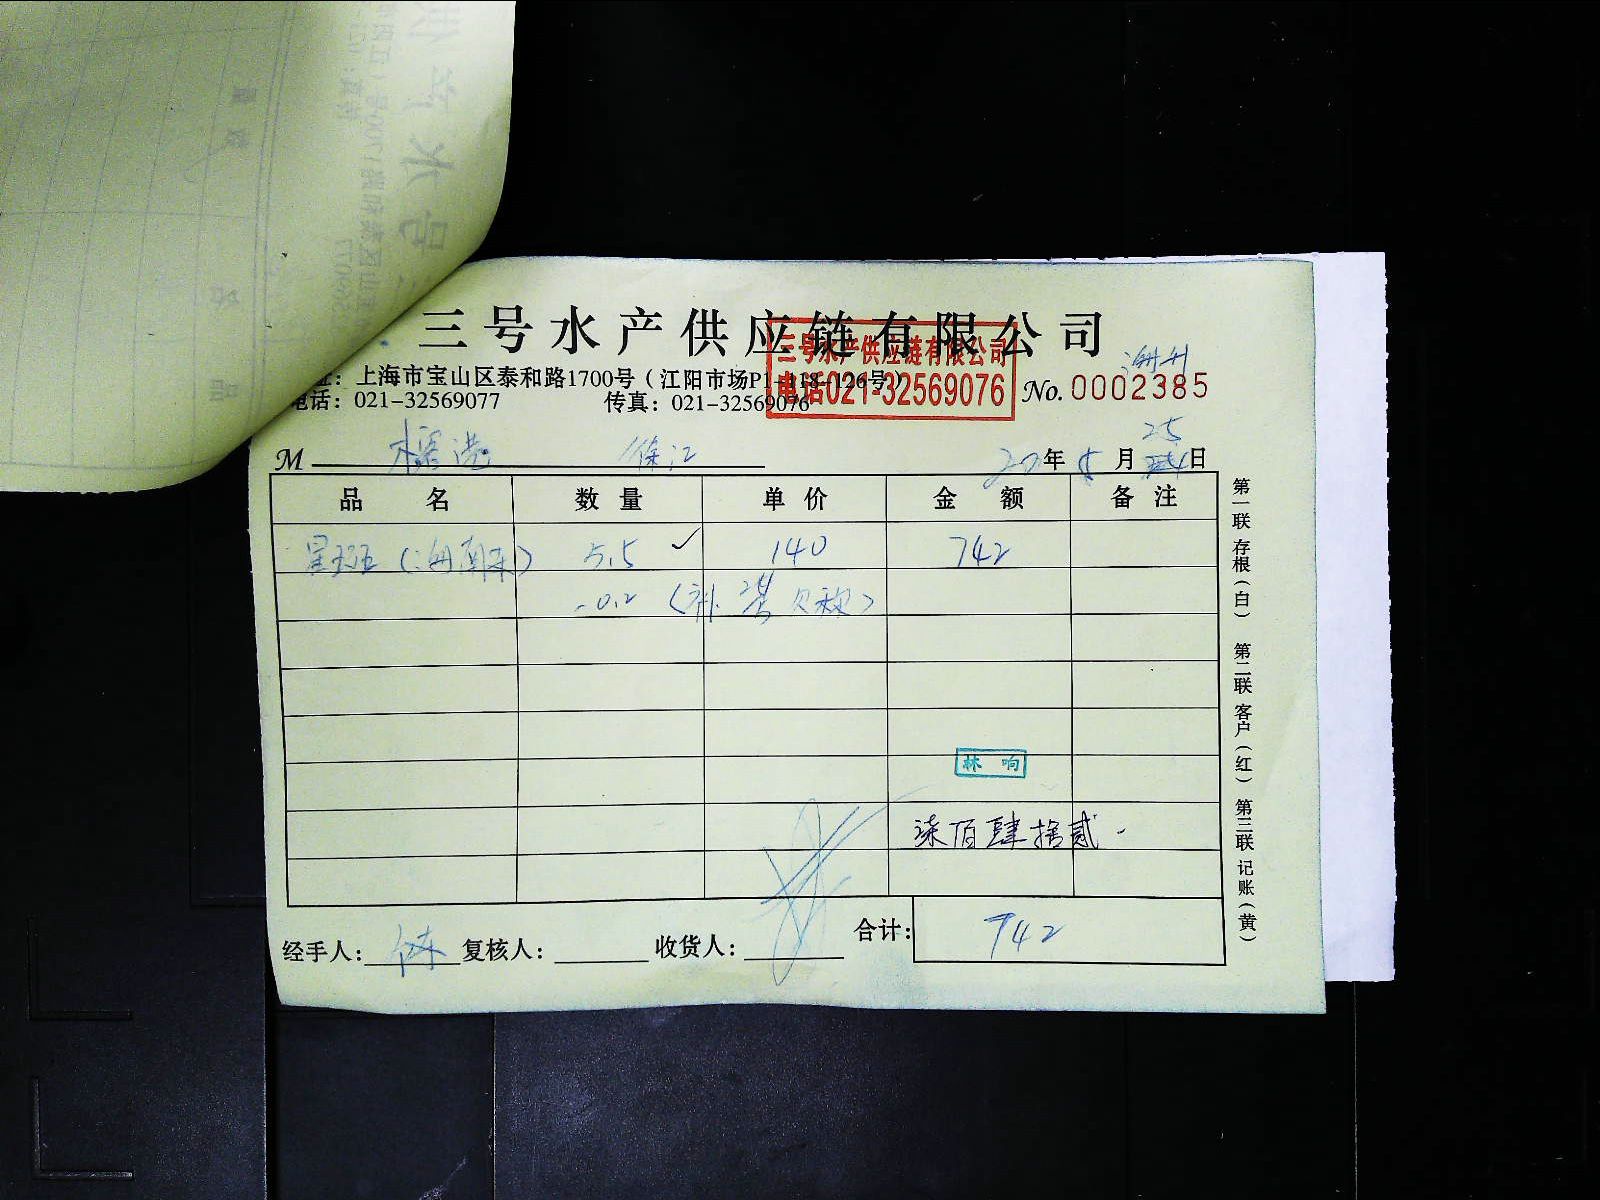 三号水产供应链有限公司
三号水产供应链有限公司
电话021-32569076
址：上海市宝山区泰和路1700号（江阳市场P1-118-126号）
电话：021-32569077 传真：021-32569076
No. 0002385
M 榴港 徐江 20年 8月 25日
品名 数量 单价 金额 备注
星斑（海南东） 5.5 140 742
-0.2（补
林 响
柒佰肆拾贰
经手人： 复核人： 收货人： 合计： 742
第一联 存根（白） 第二联 客户（红） 第三联 记账（黄）